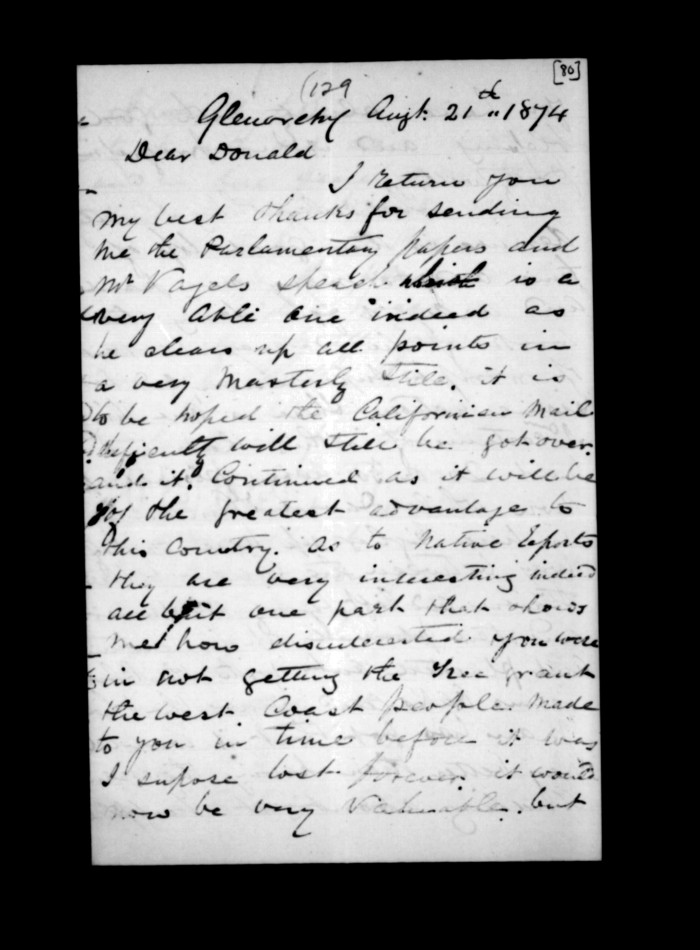 (129
[80]
Glenorchy Augt. 21st "1874
Dear Donald
I return you
my best thanks for sending
me the Parlamentary papers and
Mr Vogels speach which is a
very able one indeed as
he clears up all points in
a very Masterly Stile. it is
to be hoped the Californien Mail
deficulty will still be got over.
and it Continued as it will be
for the greatest advantage to
this Country. As to Native Reports
they are very interesting indeed
all but one part that shows
me how disinterested you were
in not getting the Free grant
the west Coast people made
to you in time before it was
I supose lost forever it would
now be very Valuable. but